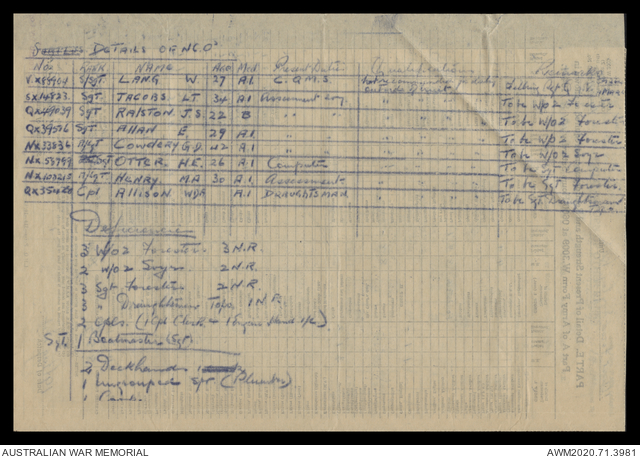 DETAILS OF N.C.O's
No. Rank NAME Age Med Present Duties Qualifications Remarks
VX84904 S/Sgt LANG W 27 A.1. C.Q.M.S.
SX14823 Sgt. JACOBS LT 34 A.1 Assessment To be W/O2 forester
QX49039 Sgt RALSTON J.S 22 B " " " " To be W/O2 forester
QX39056 Sgt ALLAN E 29 A.1. " " " " To be W/O2 forester
NX33836 A/Sgt COWDERY G.D. 42 A.1 " " " " To be W/O2 Svyr
NX53799 Sgt OTTER H.E. 26 A.1 Computer " " To be Sgt Computer
A/Sgt HENRY MA 30 A.1. Assessment " " To be Sgt forester.
Cpl ALLISON A.1 DRAUGHTSMAN " " To be Sgt Draughtsman Topo.
Deficiencies
3 W/O2 foresters 3 N.R.
2 W/O2 Svyrs 2 N.R.
3 Sgt foresters 2 N.R.
3 " Draughtsmen Topo. 1 N.R.
2 Cpls. (1 Cpl Clerk
Sgt. 1 Boatmaster (Sgt).
2 Deckhands
1 ungrouped Spr (Plumber)
1
AUSTRALIAN WAR MEMORIAL AWM2020.71.3981